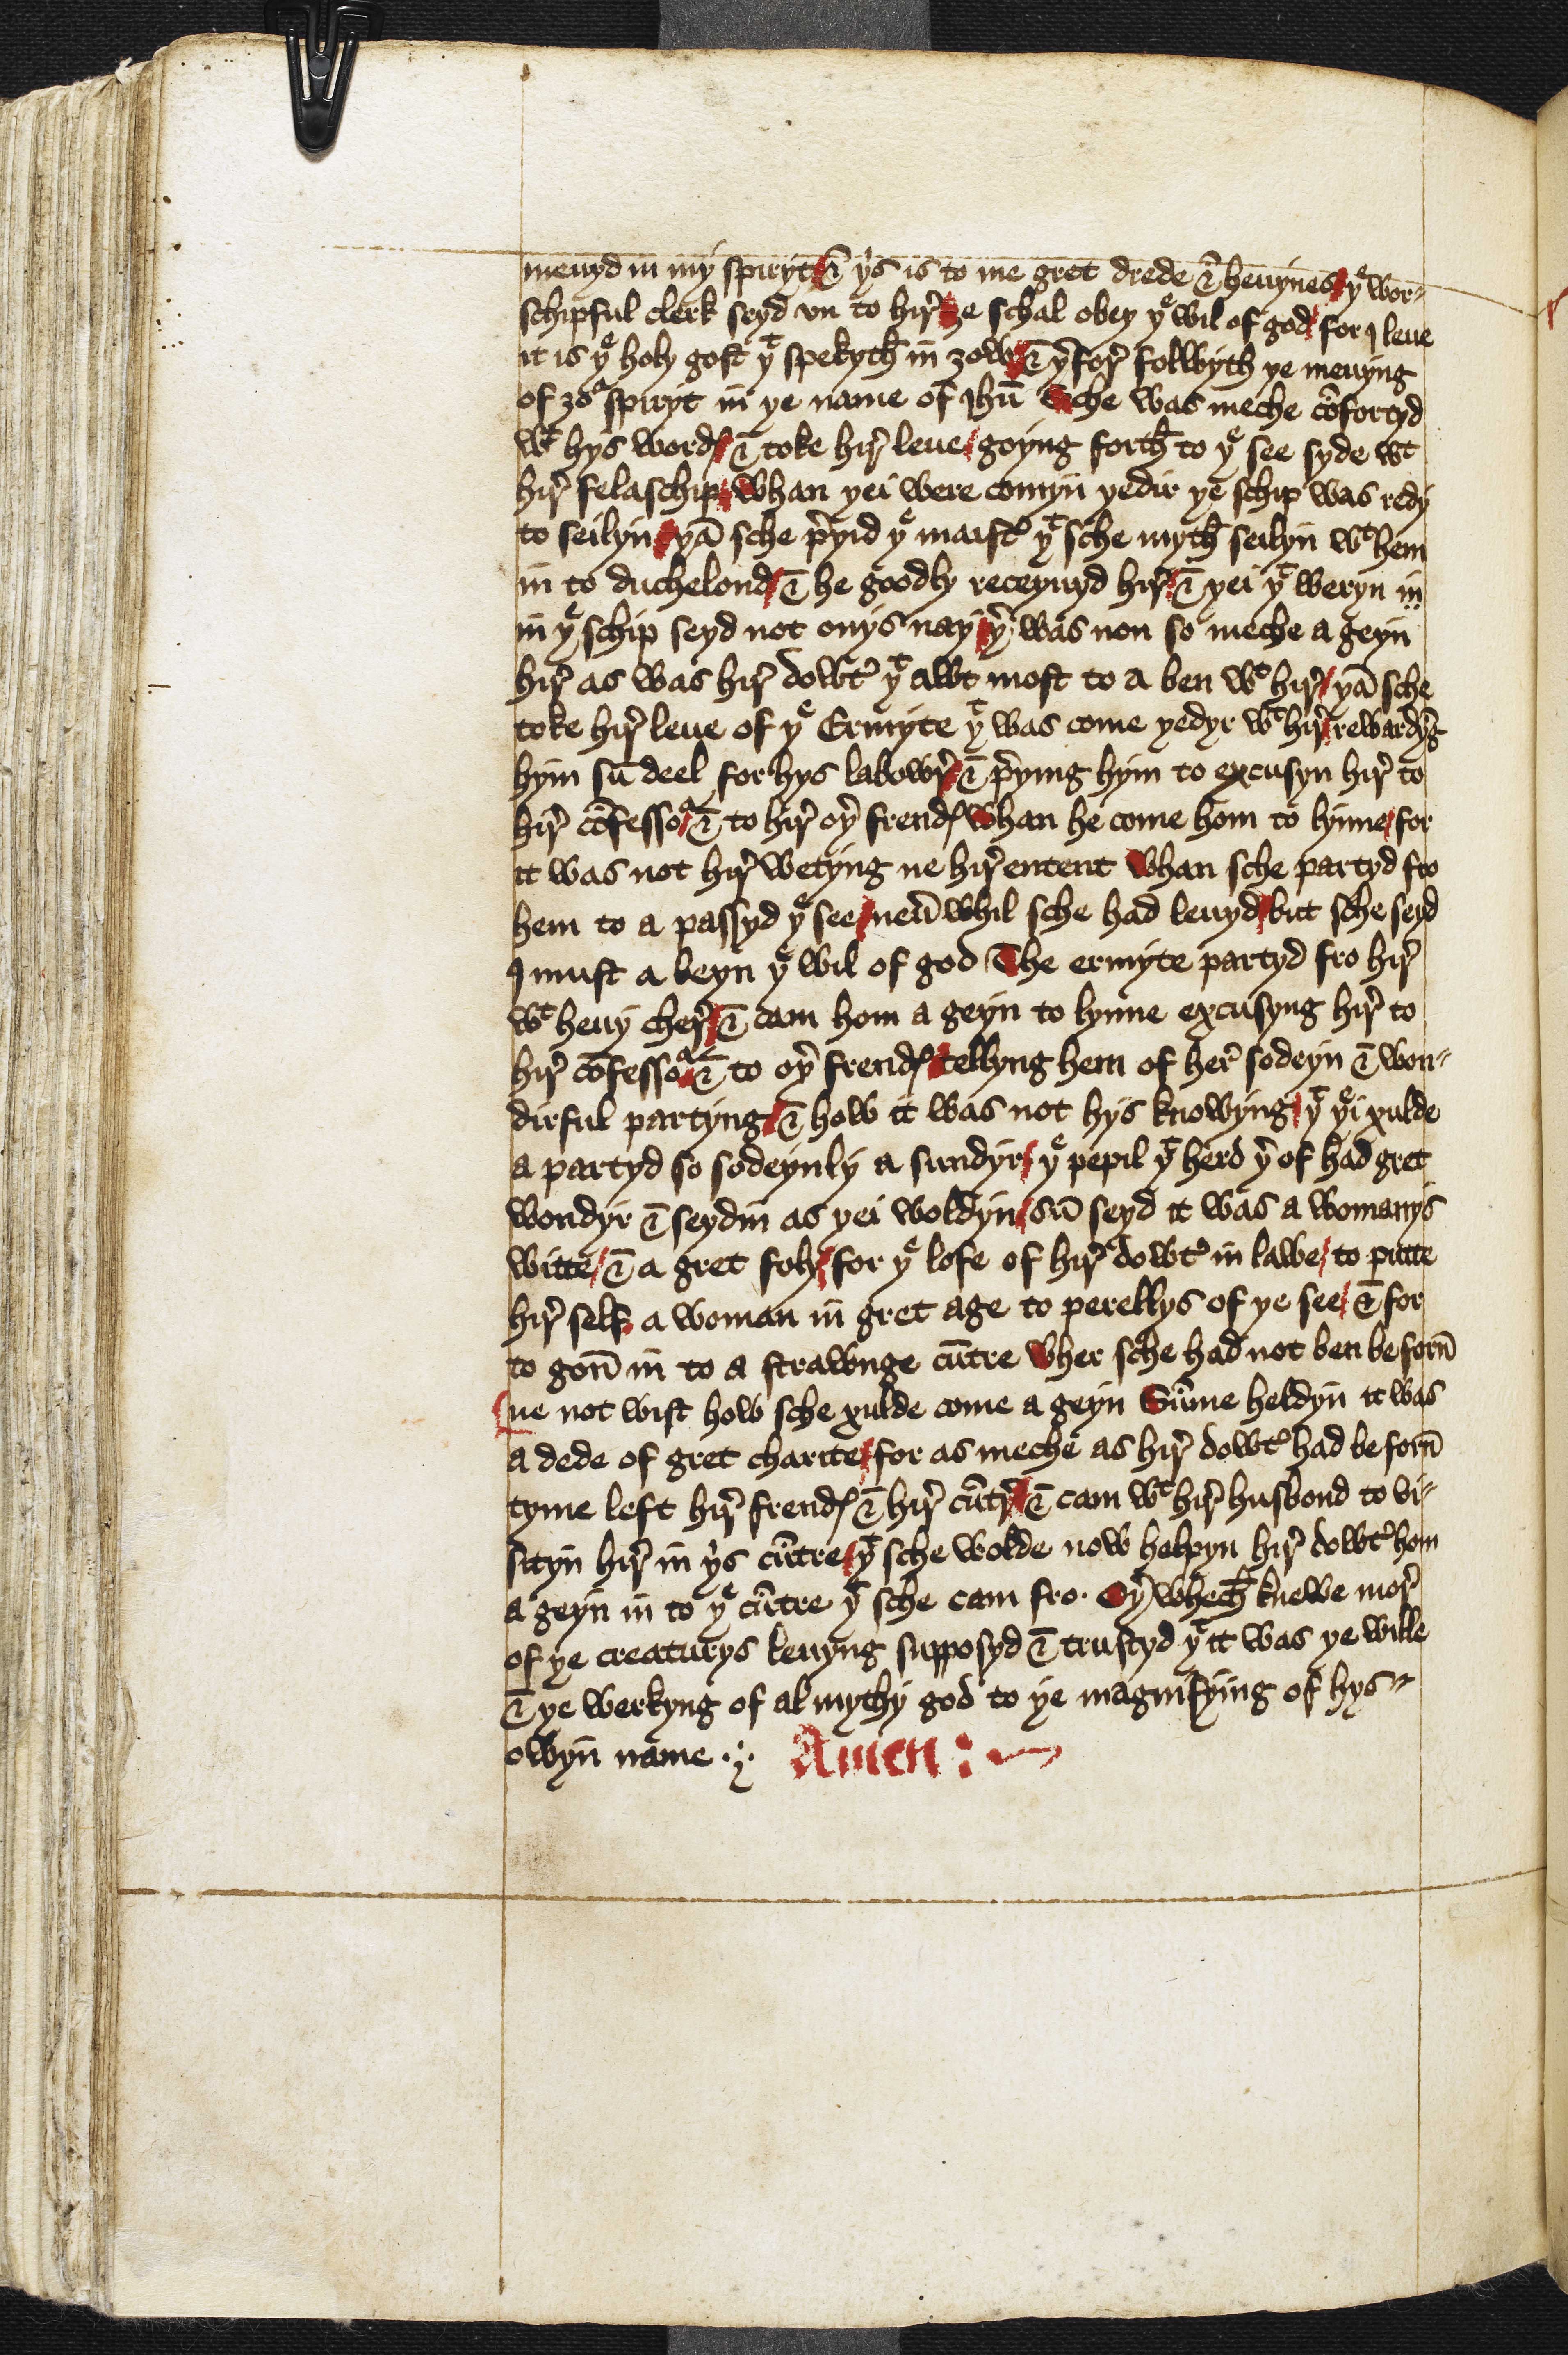 meuyd in my spiryt & yͥs is to me gret drede & heuynes / yͤ wor⸗
schipful clerk seyd vn to hir̛ ȝe schal obey yͤ wil of god / for I leue
it is yͤ holy gost yͭ spekyth in ȝow / & yerfor̛ folwyth ye meuyng
of ȝoᵘr spiryt in ye name of Jhū Sche was meche cōfortyd
wͭ hys wordꝭ / & toke hir̛ leue / goyng forth to yͤ see syde wͭ
hir̛ felaschip / Whan yei were comyn yedir ye schip was redy
to seilyn / yā sche p̄yid yͤ maistꝰ yͭ sche myth seilyn wͭ hem
in to duchelond / & he goodly receyuyd hir̛ / & yei yͭ weryn in
in yͤ schip seyd not onys nay / yͬ was non so meche a geyn
hir̛ as was hir̛ dowtꝰ yͭ awt most to a ben wͭ hir̛ / yā sche
toke hir̛ leue of yͤ Ermyte yͭ was come yedyr wͭ hir̛ / rewardȳg
hym sū deel for hys labowr̛ / & p̄yng hym to excusyn hir̛ to
hir̛ cōfessoᵘr / & to hir̛ oyͬ frendꝭ whan he come hom to lynne / for
it was not hir̛ wetyng ne hir̛ entent Whan sche partyd fro
hem to a passyd yͤ see / neū whil sche had leuyd / but sche seyd
I must a beyn yͤ wil of god The ermyte partyd fro hir̛
wͭ heuy cher̛ / & cam hom a geyn to lynne excusyng hir̛ to
hir̛ cōfessoᵘr / & to oyͬ frendꝭ / tellyng hem of her̛ sodeyn & won⸗
dirful partyng / & how it was not hys knowyng / yͭ yͤi xulde
a partyd so sodeynly a sundyr / yͤ pepil yͭ herd yͬ of had gret
wondyr & seydin as yei woldyn / sū seyd it was a womanys
witte / & a gret foly / for yͤ lofe of hir̛ dowtꝰ in lawe / to putte
hir̛ self / a woman in gret age to perellys of ye see / & for
to gon̄ in to a strawnge cūtre Wher sche had not ben beforn̄
ne not wist how sche xulde come a geyn Sūme heldyn it was
a dede of gret charite / for as meche as hir̛ dowtꝰ had beforn̄
tyme left hir̛ frendꝭ & hir̛ cūtr̛ / & cam wͭ hir̛ husbond to vi⸗
sityn hir̛ in yͥs cūtre / yͭ sche wolde now helpyn hir̛ dowtꝰ hom
a geyn in to yͤ cūtre yͭ sche cam fro. Oyͬ whech knewe mor̛
of ye creaturys leuyng supposyd & trustyd yͭ it was ye wille
& ye werkyng of al mythy god to ye magnifying of hys⸗
owyn name . Amen :